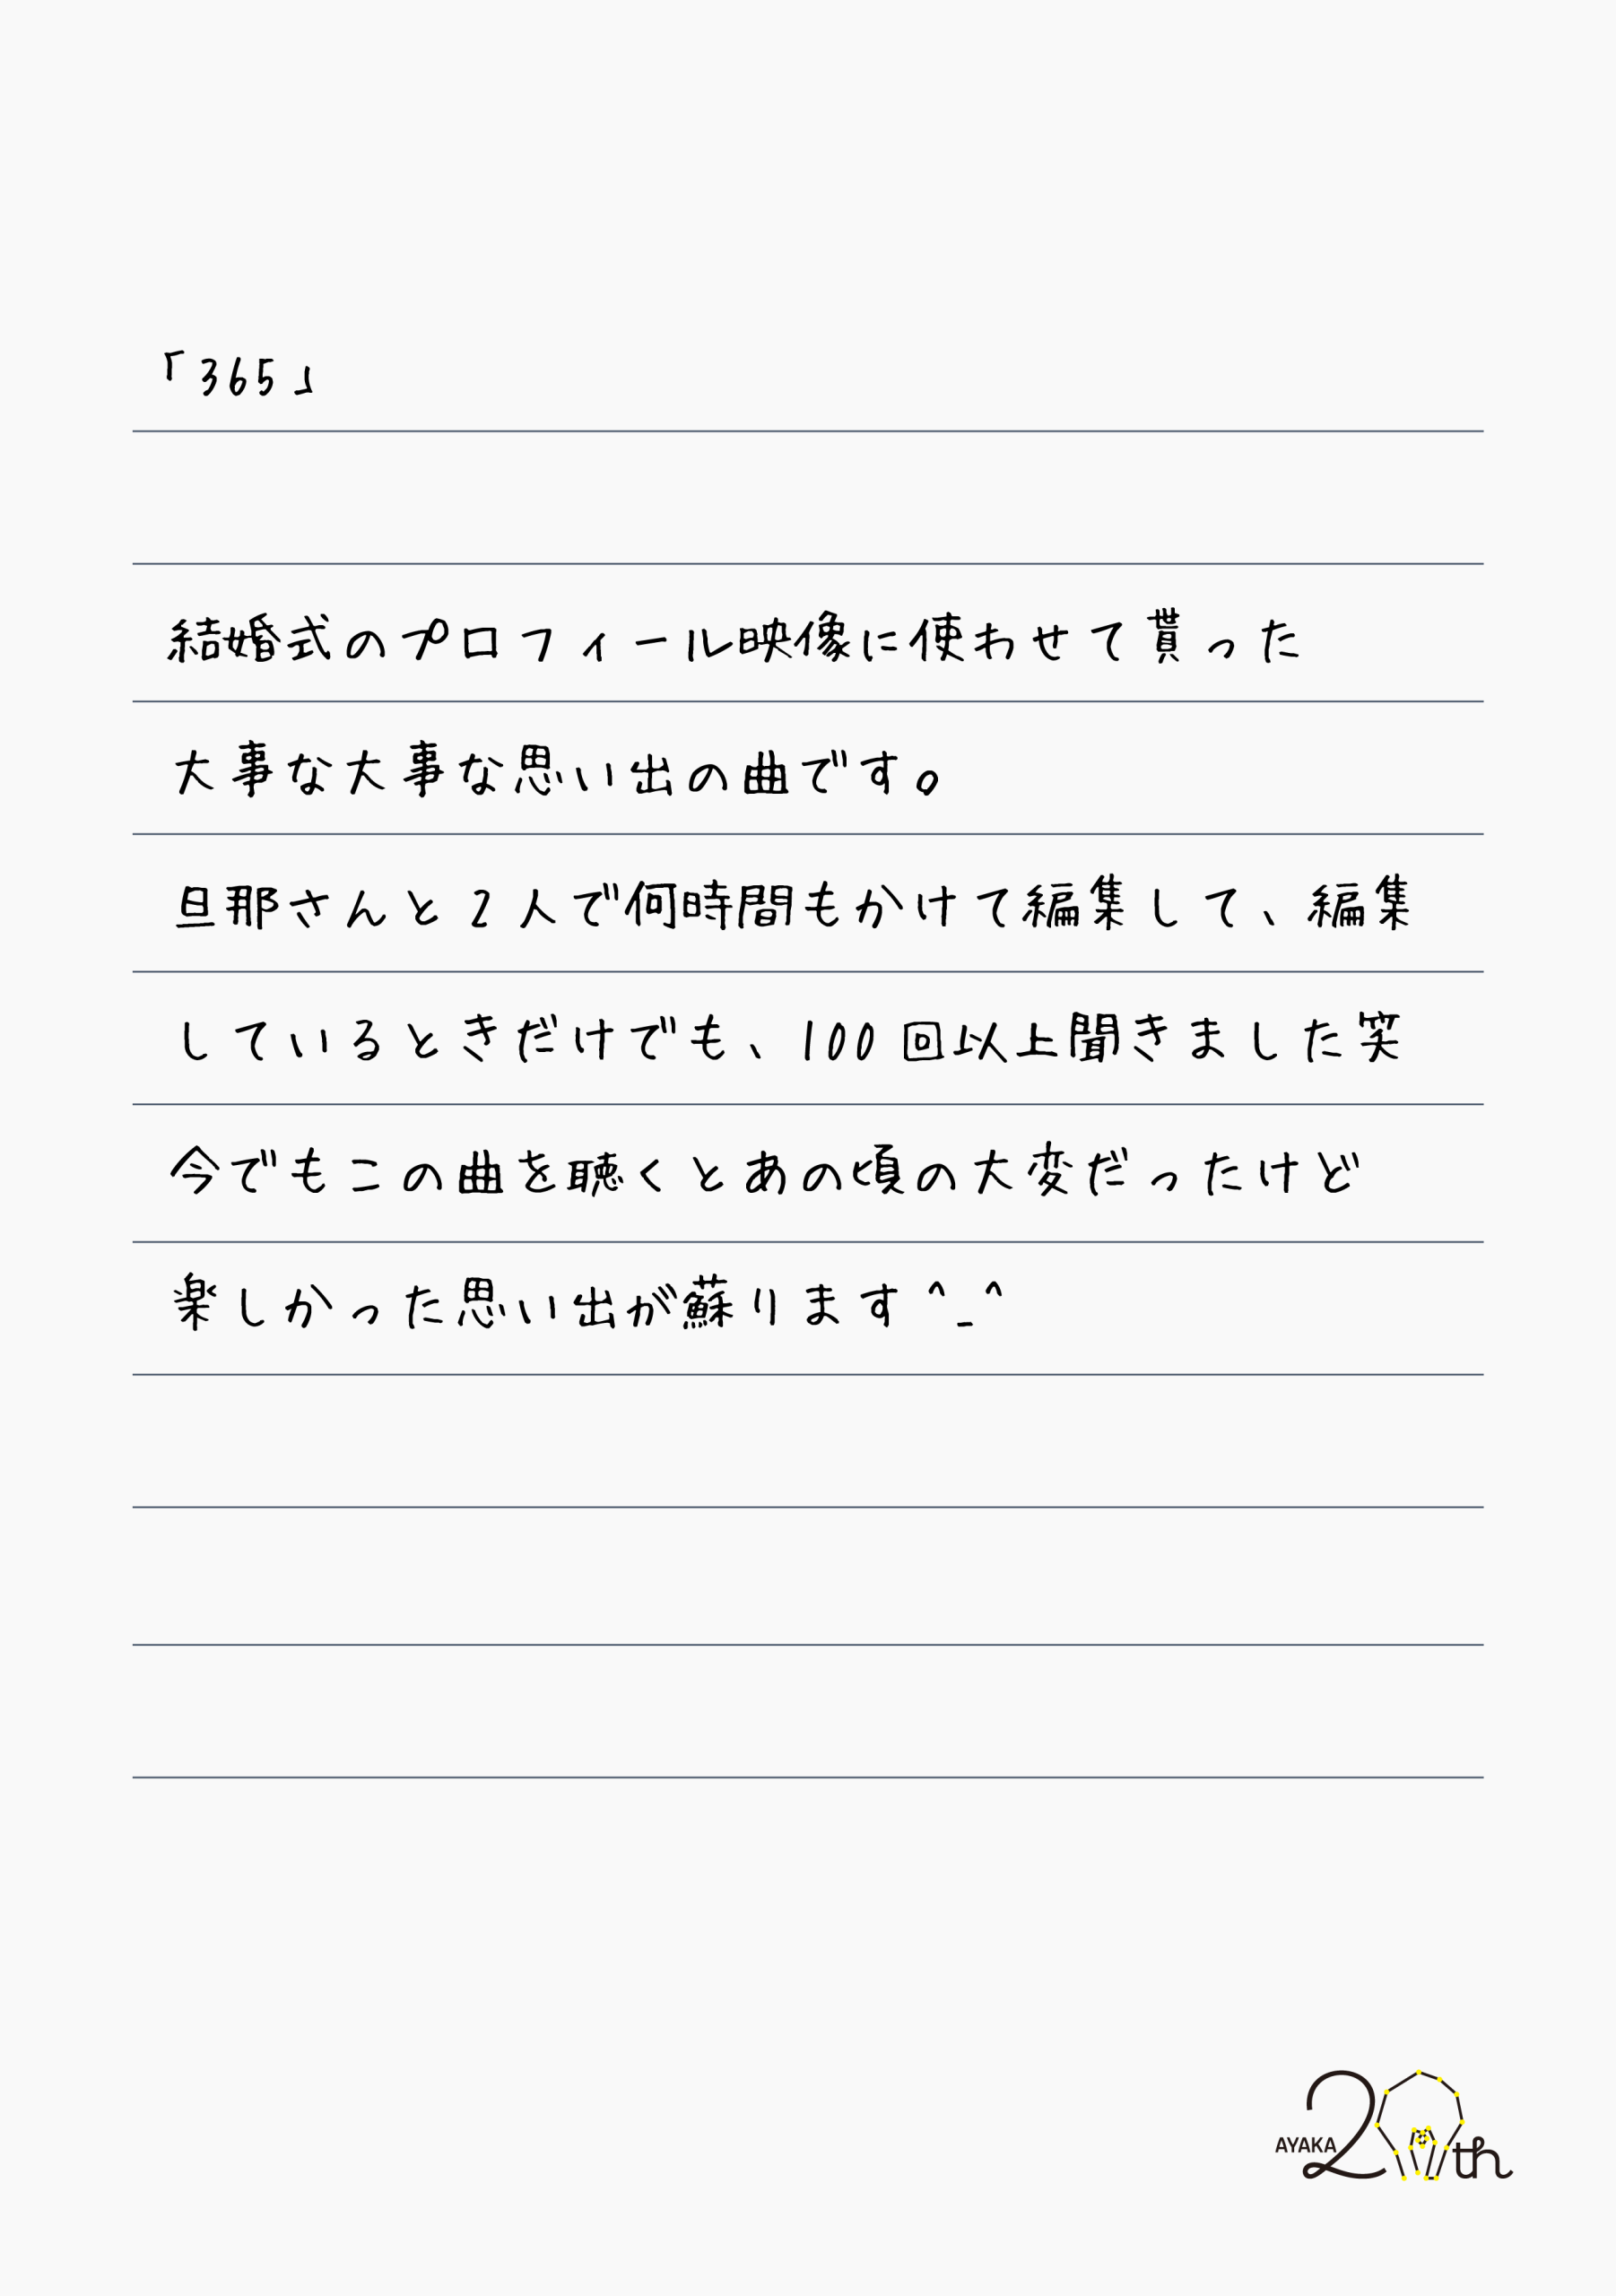 「365」
結婚式のプロフィール映像に使わせて貰った
大事な大事な思い出の曲です。
旦那さんと2人で何時間もかけて編集して、編集
しているときだけでも、100回以上聞きました笑
今でもこの曲を聴くとあの頃の大変だったけど
楽しかった思い出が蘇ります^_^
AYAKA 20th